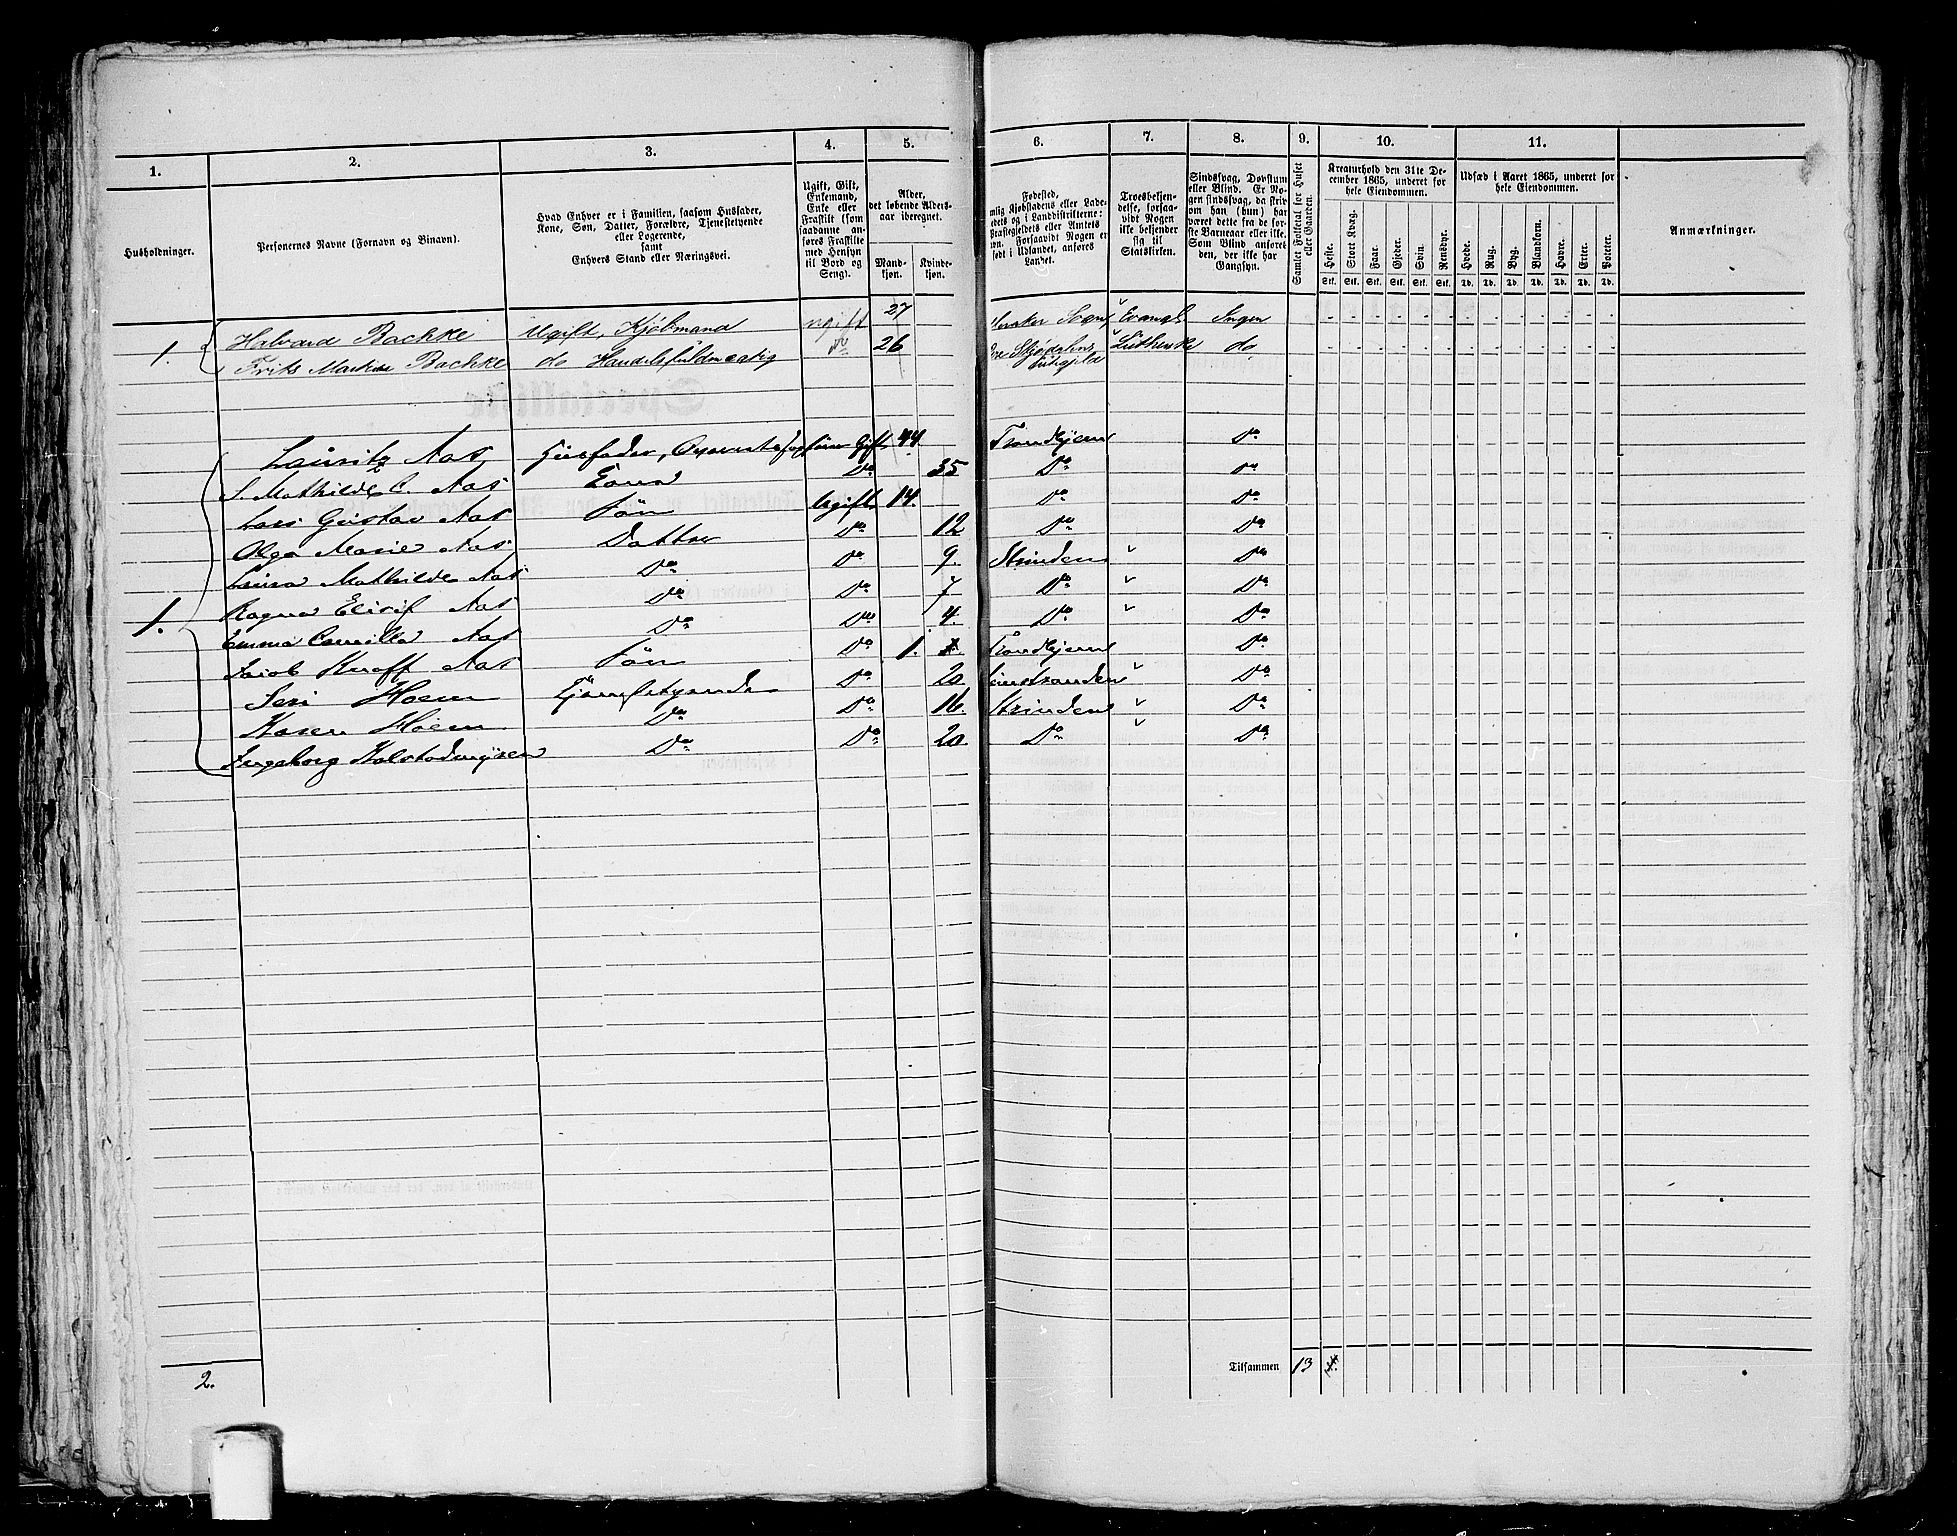 1. 2. 3. 4. 5. 6. 7. 8. 9. 10. 11.
Husholdninger.
Personernes Navne (Fornavn og Binavn).
Hvad Enhver er i Familien, saasom Husfader,
Kone, Søn, Datter, Forældre, Tjenestetyende
eller Logerende,
samt
Enhvers Stand eller Næringsvei.
Ugift, Gift,
Enkemand,
Enke eller
Fraskilt (som
saadanne an-
føres Fraskilte
med Hensyn
til Bord og
Seng).
Alder,
det løbende Alders-
aar iberegnet.
Mand-
kjøn.
Kvinde-
kjøn.
Fødested,
mlig Kjøbstadens eller Lade-
dets og i Landdistrikterne:
Præstegjeldets eller Amtets
vn. Forsaavidt Nogen er
født i Udlandet, anføres
Landet.
Troesbekjen-
delse, forsaa-
vidt Nogen
ikke bekjender
sig til
Statskirken.
Sindssvag, Døvstum
eller Blind. Er No-
gen sindssvag, da skriv
om han (hun) har
været dette fra de før-
ste Barneaar eller ikke.
Som Blind anføres
den, der ikke har
Gangsyn.
Samlet Folketal for Huset
eller Gaarden.
Kreaturhold den 31te De-
cember 1865, underet for
hele Eiendommen.
Heste. Stort Kvæg. Faar. Gjeder. Svin. Rensdyr.
Stk. Stk. Stk. Stk. Stk. Stk.
Udsæd i Aaret 1865, underet for
hele Eiendommen.
Hvede. Rug. Byg. Blandkorn. Havre. Erter. Poteter.
Td. Td. Td. Td. Td. Td. Td.
Anmærkninger.
Halvard Bachke Ugift, Kjøbmand ugift 27 Meraker Sogn Evangl Ingen
1. Frits Bachke do Handelsfuldmægtig Do 26 Lutherske do
Lauritz Aas Huusfader, Gift 44. Trondhjem Do
S. Mathilde C. Aas Kone Do 35 Do Do
Lars Gustav Aas Søn Ugift 14. Do Do
Olga Marie Aas Datter Do 12 Do Do
Laura Mathilde Aas Do Do 9. Strinden Do
Ragna Elisif Aas Do Do 7 Do Do
1. Emma Camilla Aas Do Do 4. Do Do
Jacob Knoff Aas Søn Do 1. Trondhjem Do
Seri Hoem Tjenestetyende Do 20 Do
Karen Hoem Do Do 16. Strinden Do
Ingeborg Do Do 20 Do Do
Tilsammen 13
2.